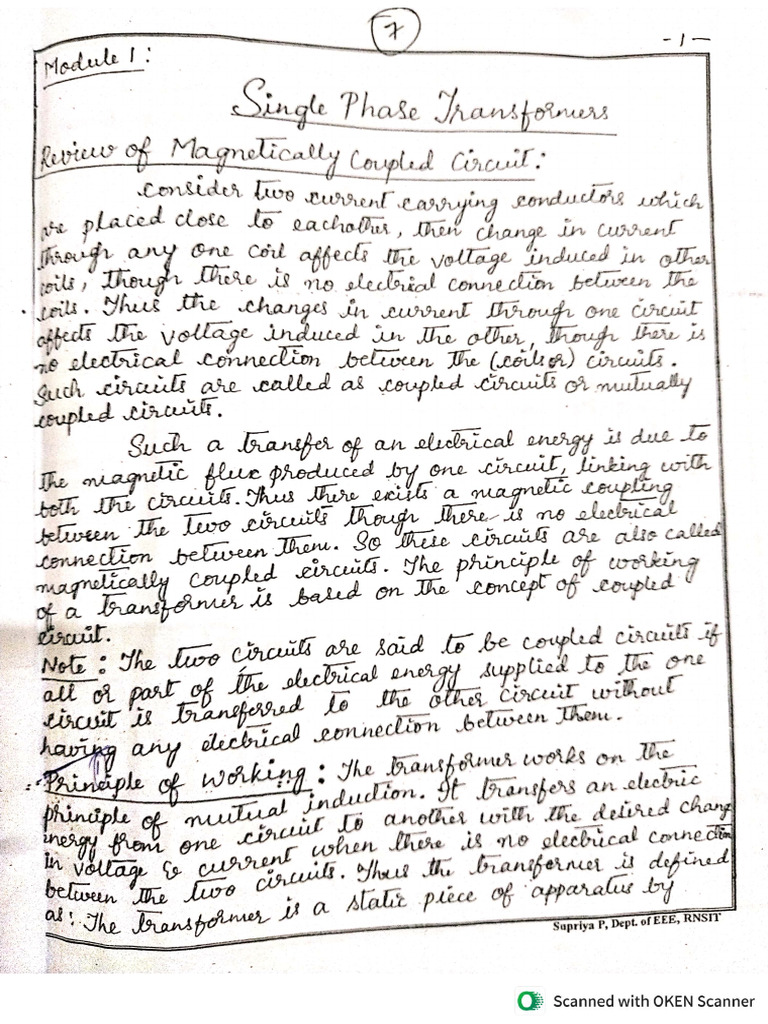 7
-1-
Module 1:
Single Phase Transformers
Review of Magnetically Coupled Circuit:
Consider two current carrying conductors which
are placed close to eachother, then change in current
through any one coil affects the voltage induced in other
coils, though there is no electrical connection between the
coils. Thus the changes in current through one circuit
affects the voltage induced in the other, though there is
no electrical connection between the (coils or) circuits.
Such circuits are called as coupled circuits or mutually
coupled circuits.
Such a transfer of an electrical energy is due to
the magnetic flux produced by one circuit, linking with
both the circuits. Thus there exists a magnetic coupling
between the two circuits though there is no electrical
connection between them. So these circuits are also called
magnetically coupled circuits. The principle of working
of a transformer is based on the concept of coupled
circuit.
Note: The two circuits are said to be coupled circuits if
all or part of the electrical energy supplied to the one
circuit is transferred to the other circuit without
having any electrical connection between them.
Principle of working: The transformer works on the
principle of mutual induction. It transfers an electric
energy from one circuit to another with the desired change
in voltage & current when there is no electrical connection
between the two circuits. Thus the transformer is defined
as: The transformer is a static piece of apparatus by
Supriya P, Dept. of EEE, RNSIT
Scanned with OKEN Scanner